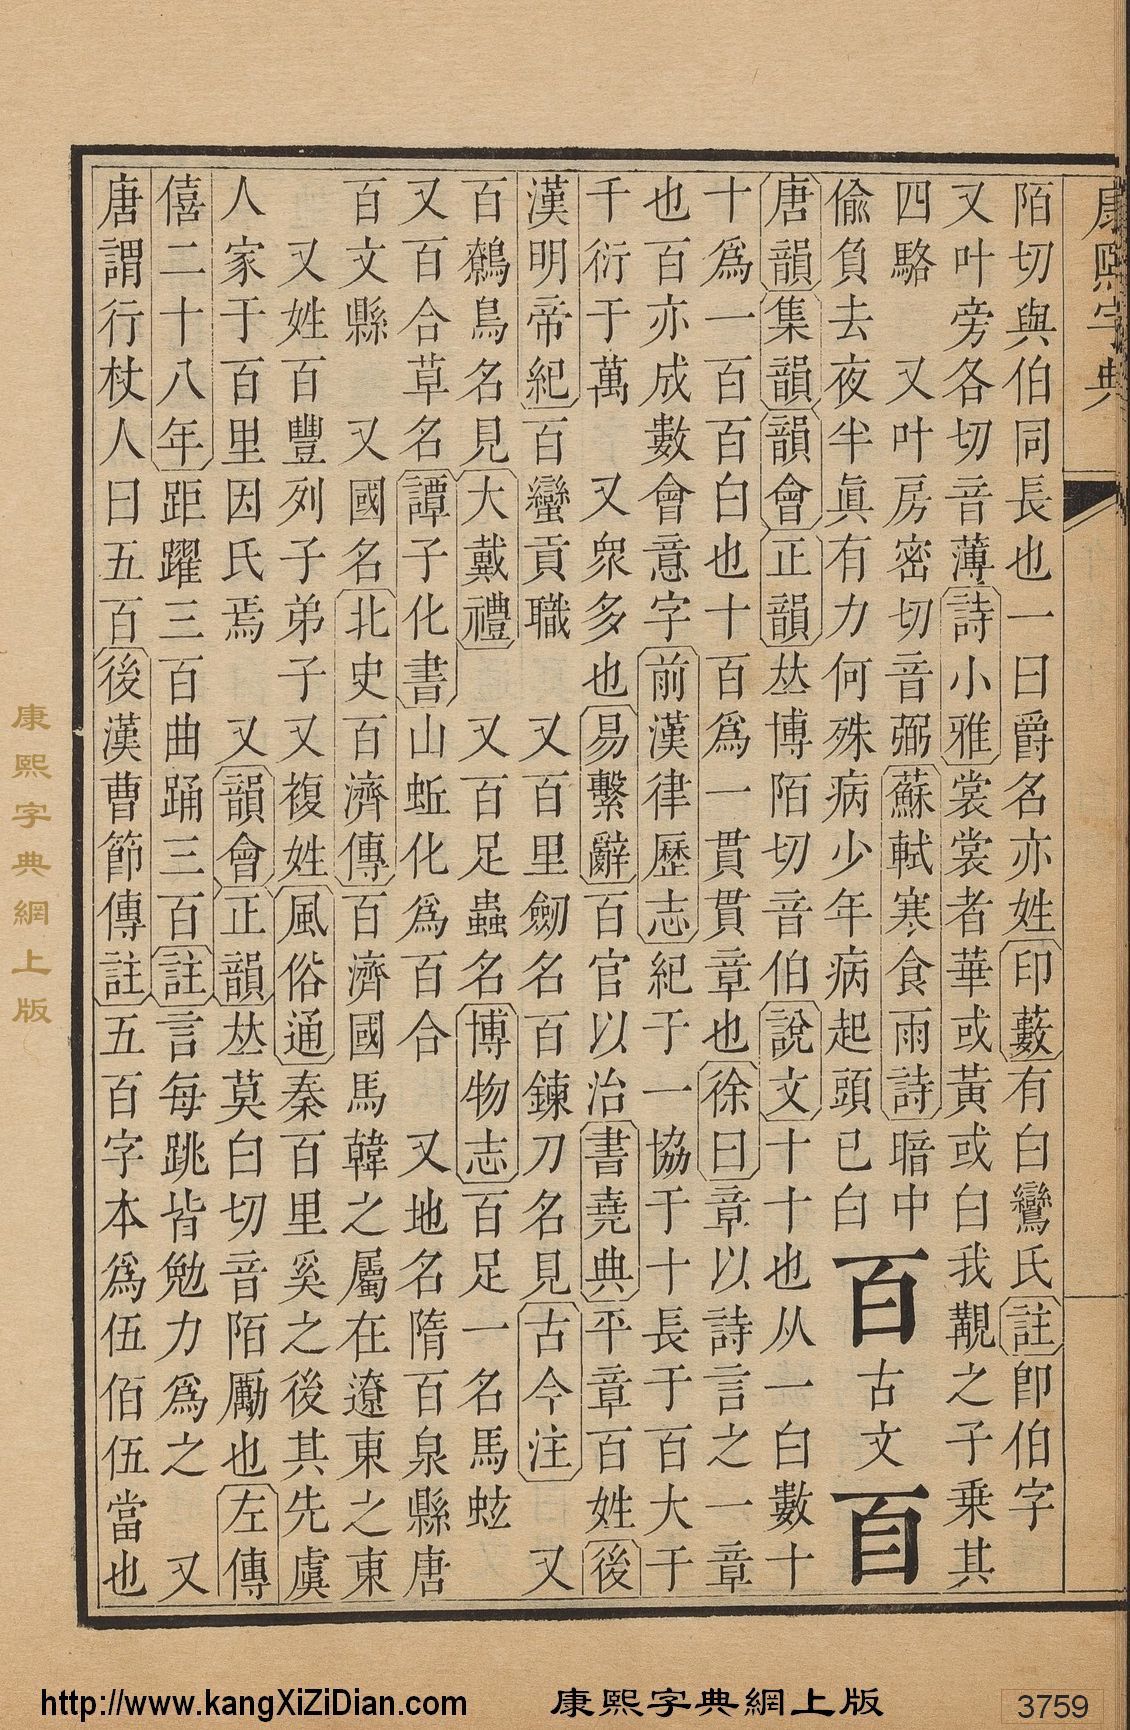 康熙字典
陌切與伯同長也一曰爵名亦姓印藪有白鸞氏註卽伯字
又叶旁各切音薄詩小雅裳裳者華或黃或白我覯之子乘其
四駱　又叶房密切音弼蘇軾寒食雨詩暗中
偸負去夜半眞有力何殊病少年病起頭已白
百　古文　𦣻
唐韻集韻韻會正韻𠀤博陌切音伯說文十十也从一白數十
十爲一百百白也十百爲一貫貫章也徐曰章以詩言之一章
也百亦成數會意字前漢律歷志紀于一協于十長于百大于
千衍于萬　又衆多也易繫辭百官以治書堯典平章百姓後
漢明帝紀百蠻貢職　又百里劒名百鍊刀名見古今注　又
百鷯鳥名見大戴禮　又百足蟲名博物志百足一名馬蚿
又百合草名譚子化書山蚯化爲百合　又地名隋百泉縣唐
百丈縣　又國名北史百濟傳百濟國馬韓之屬在遼東之東
又姓百豐列子弟子又複姓風俗通秦百里奚之後其先虞
人家于百里因氏焉　又韻會正韻𠀤莫白切音陌勵也左傳
僖二十八年距躍三百曲踊三百註言每跳皆勉力爲之　又
唐謂行杖人曰五百後漢曹節傳註五百字本爲伍佰伍當也
康熙字典網上版
http://www.kangXiZiDian.com　康熙字典網上版　3759